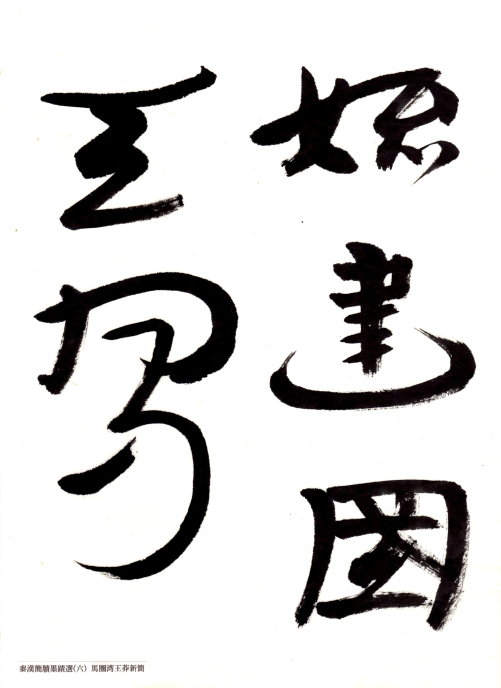 始建國
天鳳
秦漢簡牘墨蹟選(六) 馬圈湾王莽新簡